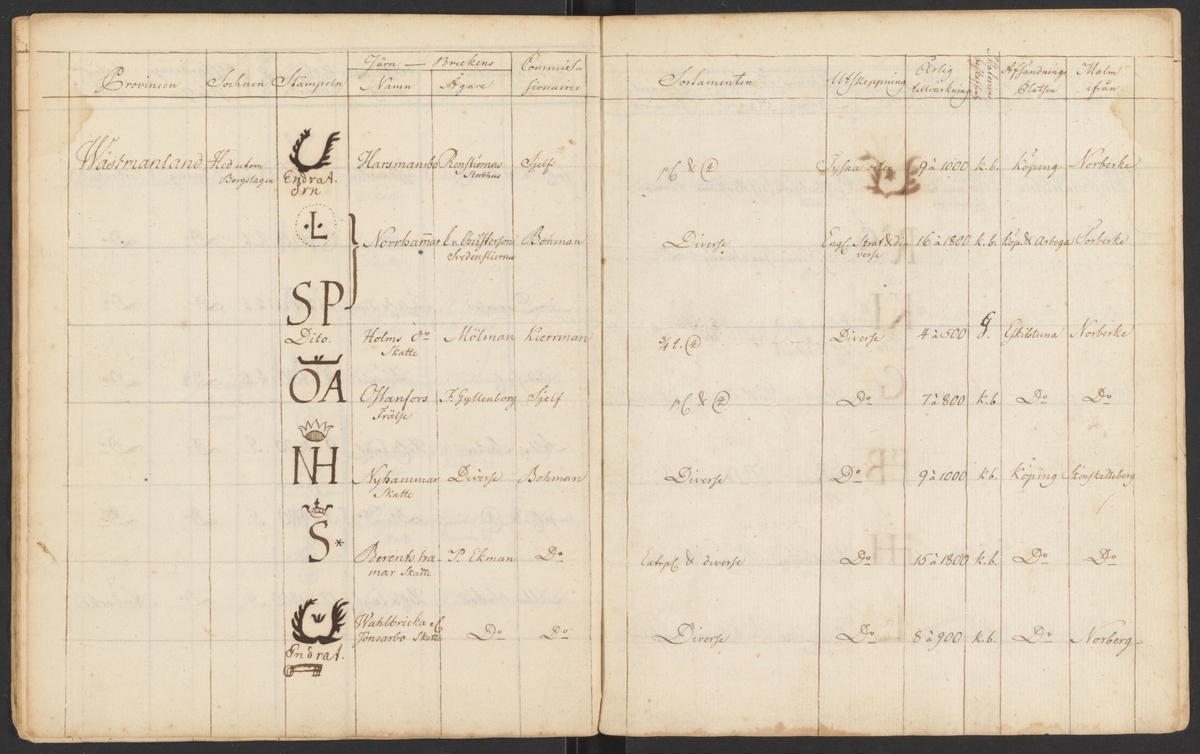 Provincen Sochnen Stämpeln Järn — Bruckens Namn Ägare Commissionairer Sortamenten Utskeppning Årlig tillvärckning Afsändnings Platsen Malm ifrån
Wästmanland Hed utom Bergslagen Endrat. Harsmansbo Renstiernas Sterbhus Sjelf pl & 4 Tyska orter 9 à 1000 k.b. Köping Norberke
L Norrhamar C. v. Christerson Svedenstierna Bohman Diverse Engl. Strat & diverse 16 à 1800 k.b. Köp. & Arboga Norberke
SP
Dito. Holms do Skatte Mölman Kierrman ¾ t. 4 Diverse 4 à 500 g. Eskilstuna Norberke
ÖA Östanfors Frälse F. Gyllenborg Sjelf pl & 4 Do 7 à 800 k.b. Do Do
NH Nyhammar Skatte Diverse Bohman Diverse Do 9 à 1000 k.b. Köping Skinskatteberg
S* Berentshamar Skatte P. Ekman Do Extr pl & diverse Do 15 à 1800 k.b. Do Do
Endrat. Wahlbricka & Jonsarbo Skatte Do Do Diverse Do 8 à 900 k.b. Do Norberg